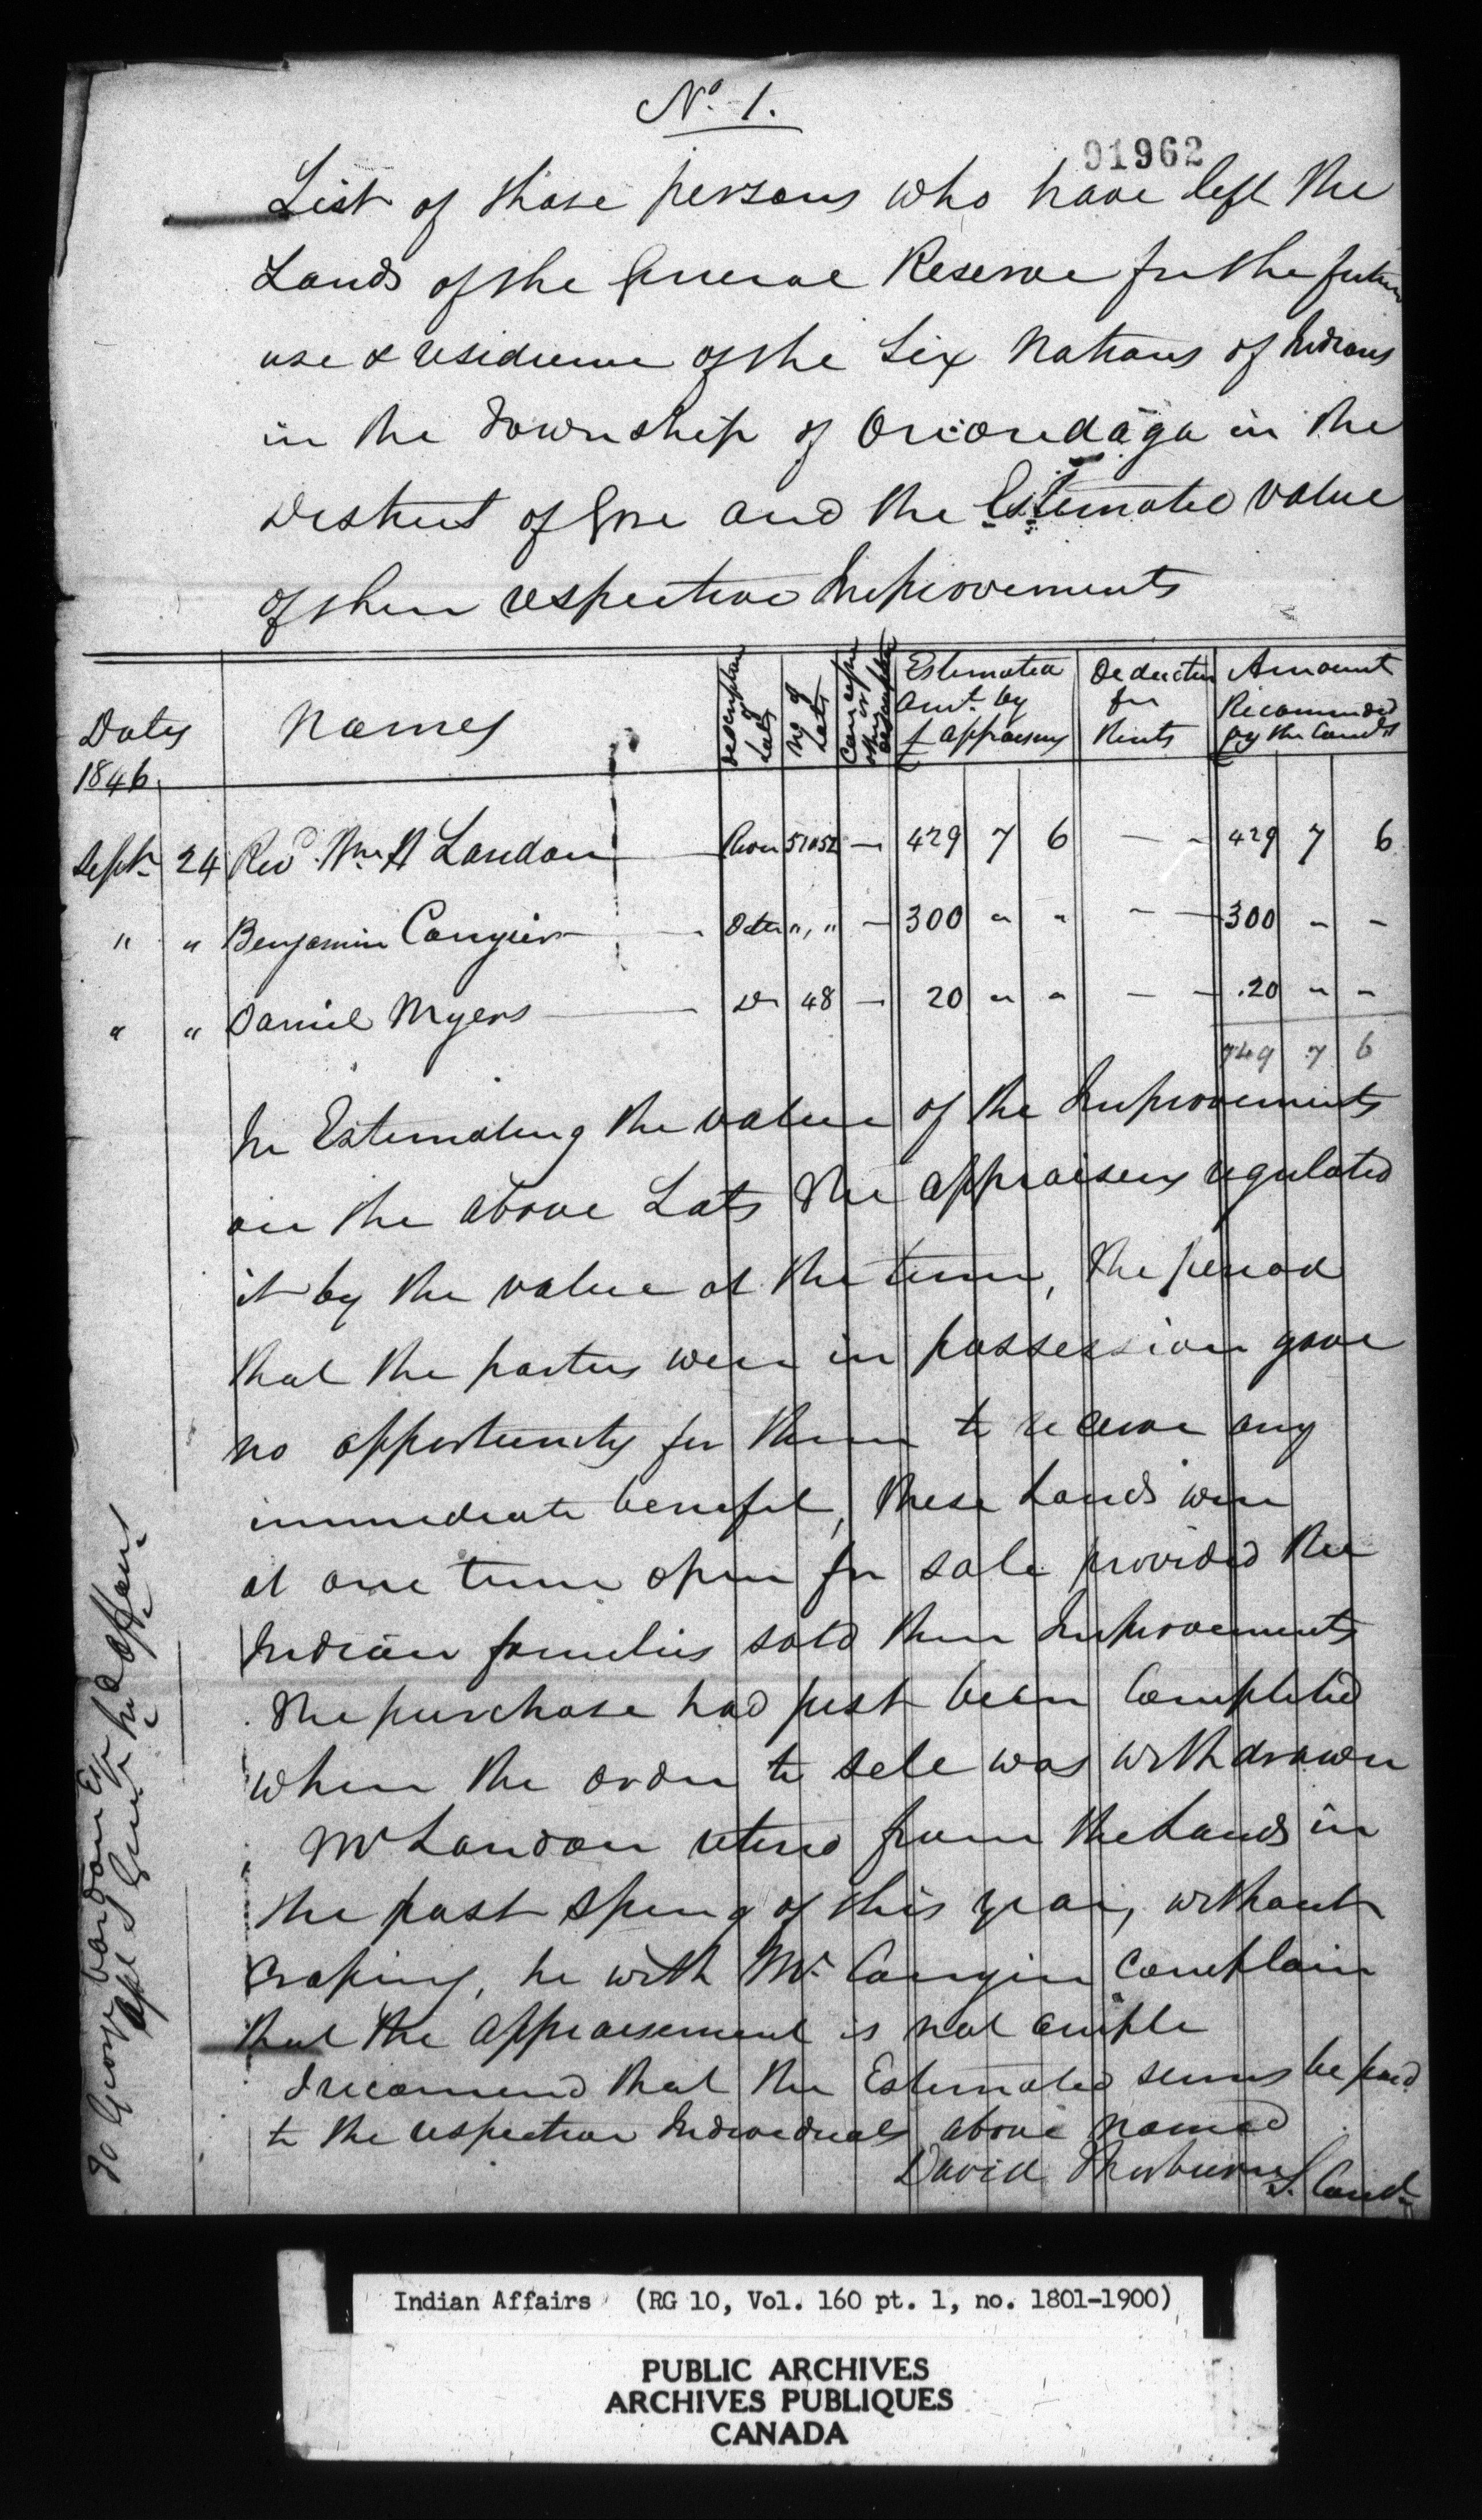 No. 1.
91962
List of those persons who have left the
Lands of the General Reserve for the future
use & residence of the Six Nations of Indians
in the Township of Onondaga in the
District of Gore and the Estimated value
of their respective Improvements
Dates
1846
Names
description of Lots
No of Lots
Concession or other description
Estimated
Amt. by
£ appraisers
Deduction
for
Rents
Amount
Recommended
by the Comr
£
Sept 24 Revd. Wm H Landon — River 51&52 — 429 7 6 — - 429 7 6
" " Benjamin Conyier — Ditto " , " — 300 " " - — 300 - -
" " Daniel Myers — Do 48 — 20 " " — - 20 " -
749 7 6
In Estimating the value of the Improvements
on the above Lots the appraisers regulated
it by the value at the time, the period
that the parties were in possession gave
no opportunity for them to receive any
immediate benefit, these Lands were
at one time open for sale provided the
Indian families sold their Improvements
The purchase had just been Completed
when the order to sell was withdrawn
Mr Landon retired from the Lands in
the past spring of this year, without
Croping, he with Mr. Conyier complain
that the appraisement is not ample
I recomend that the Estimated sums be paid
to the respective Individuals above named
David Thorburn S. Comr
To George Vardon Esqr
&c &c Ind Affairs
Indian Affairs (RG 10, Vol. 160 pt. 1, no. 1801-1900)
PUBLIC ARCHIVES
ARCHIVES PUBLIQUES
CANADA